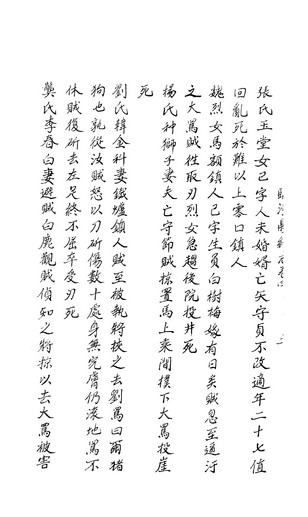 張氏玉堂女已字人未婚婿亡矢守貞不改適年二十七值
回亂死於難以上零口鎮人
魏烈女馬額鎮人已字生員白樹梅嫁有日矣賊忽至逼汙
之大罵賊性取刃烈女急趨後院投井死
楊氏种獅子妻夫亡守節賊掠置馬上乘間撲下大罵投崖
死
劉氏韓金科妻鐵爐鎮人賊至被執將挾之去劉罵曰爾猪
狗也孰從汝賊怒以刀斫傷數十處身無完膚仍滚地罵不
休賊復斫去左足終不屈卒受刃死
龔氏李春白妻避賊白鹿觀賊偵知之將掠以去大罵被害